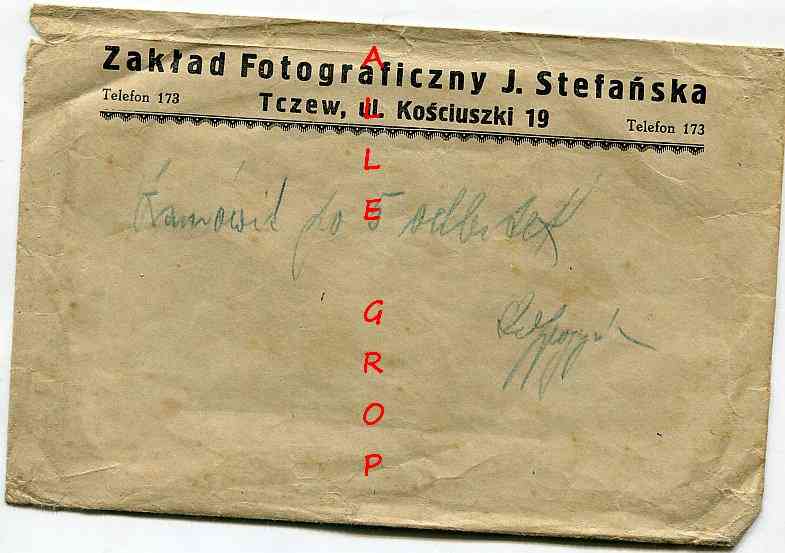 Zakład Fotograficzny J. Stefańska
Telefon 173
Tczew, ul. Kościuszki 19
Telefon 173
Zamówił po 5 odbitek
ALLE GROP